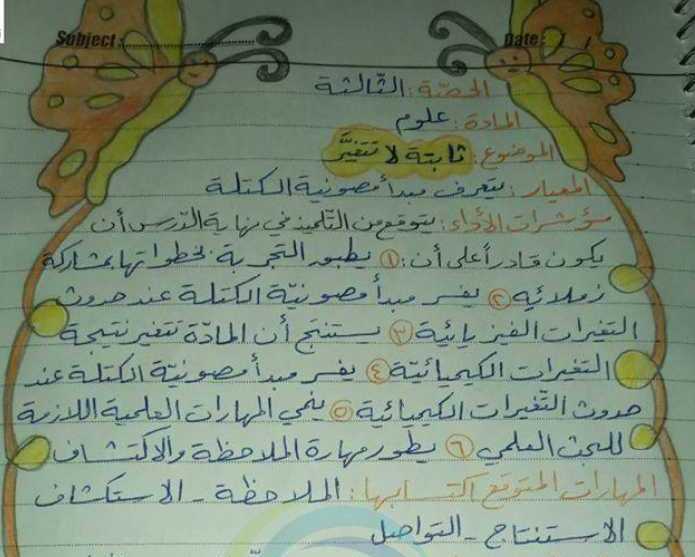 Subject: Date: / /
الحصّة: الثّالثة
المادة: علوم
الموضوع: ثابتة لا تتغيّر
المعيار: يتعرف مبدأ مصونية الكتلة
مؤشرات الأداء: يتوقع من التّلميذ في نهاية الدّرس أن
يكون قادراً على أن: ① يطبق التجربة بخطواتها بمشاركة
زملائه ② يفسر مبدأ مصونيّة الكتلة عند حدوث
التغيرات الفيزيائية ③ يستنتج أن المادّة تتغير نتيجة
التغيرات الكيميائيّة ④ يفسر مبدأ مصونيّة الكتلة عند
حدوث التّغيرات الكيميائية ⑤ ينمي المهارات العلمية اللازمة
للبحث العلمي ⑥ يطور مهارة الملاحظة والاكتشاف
المهارات المتوقع اكتسابها: الملاحظة - الاستكشاف
الاستنتاج - التواصل